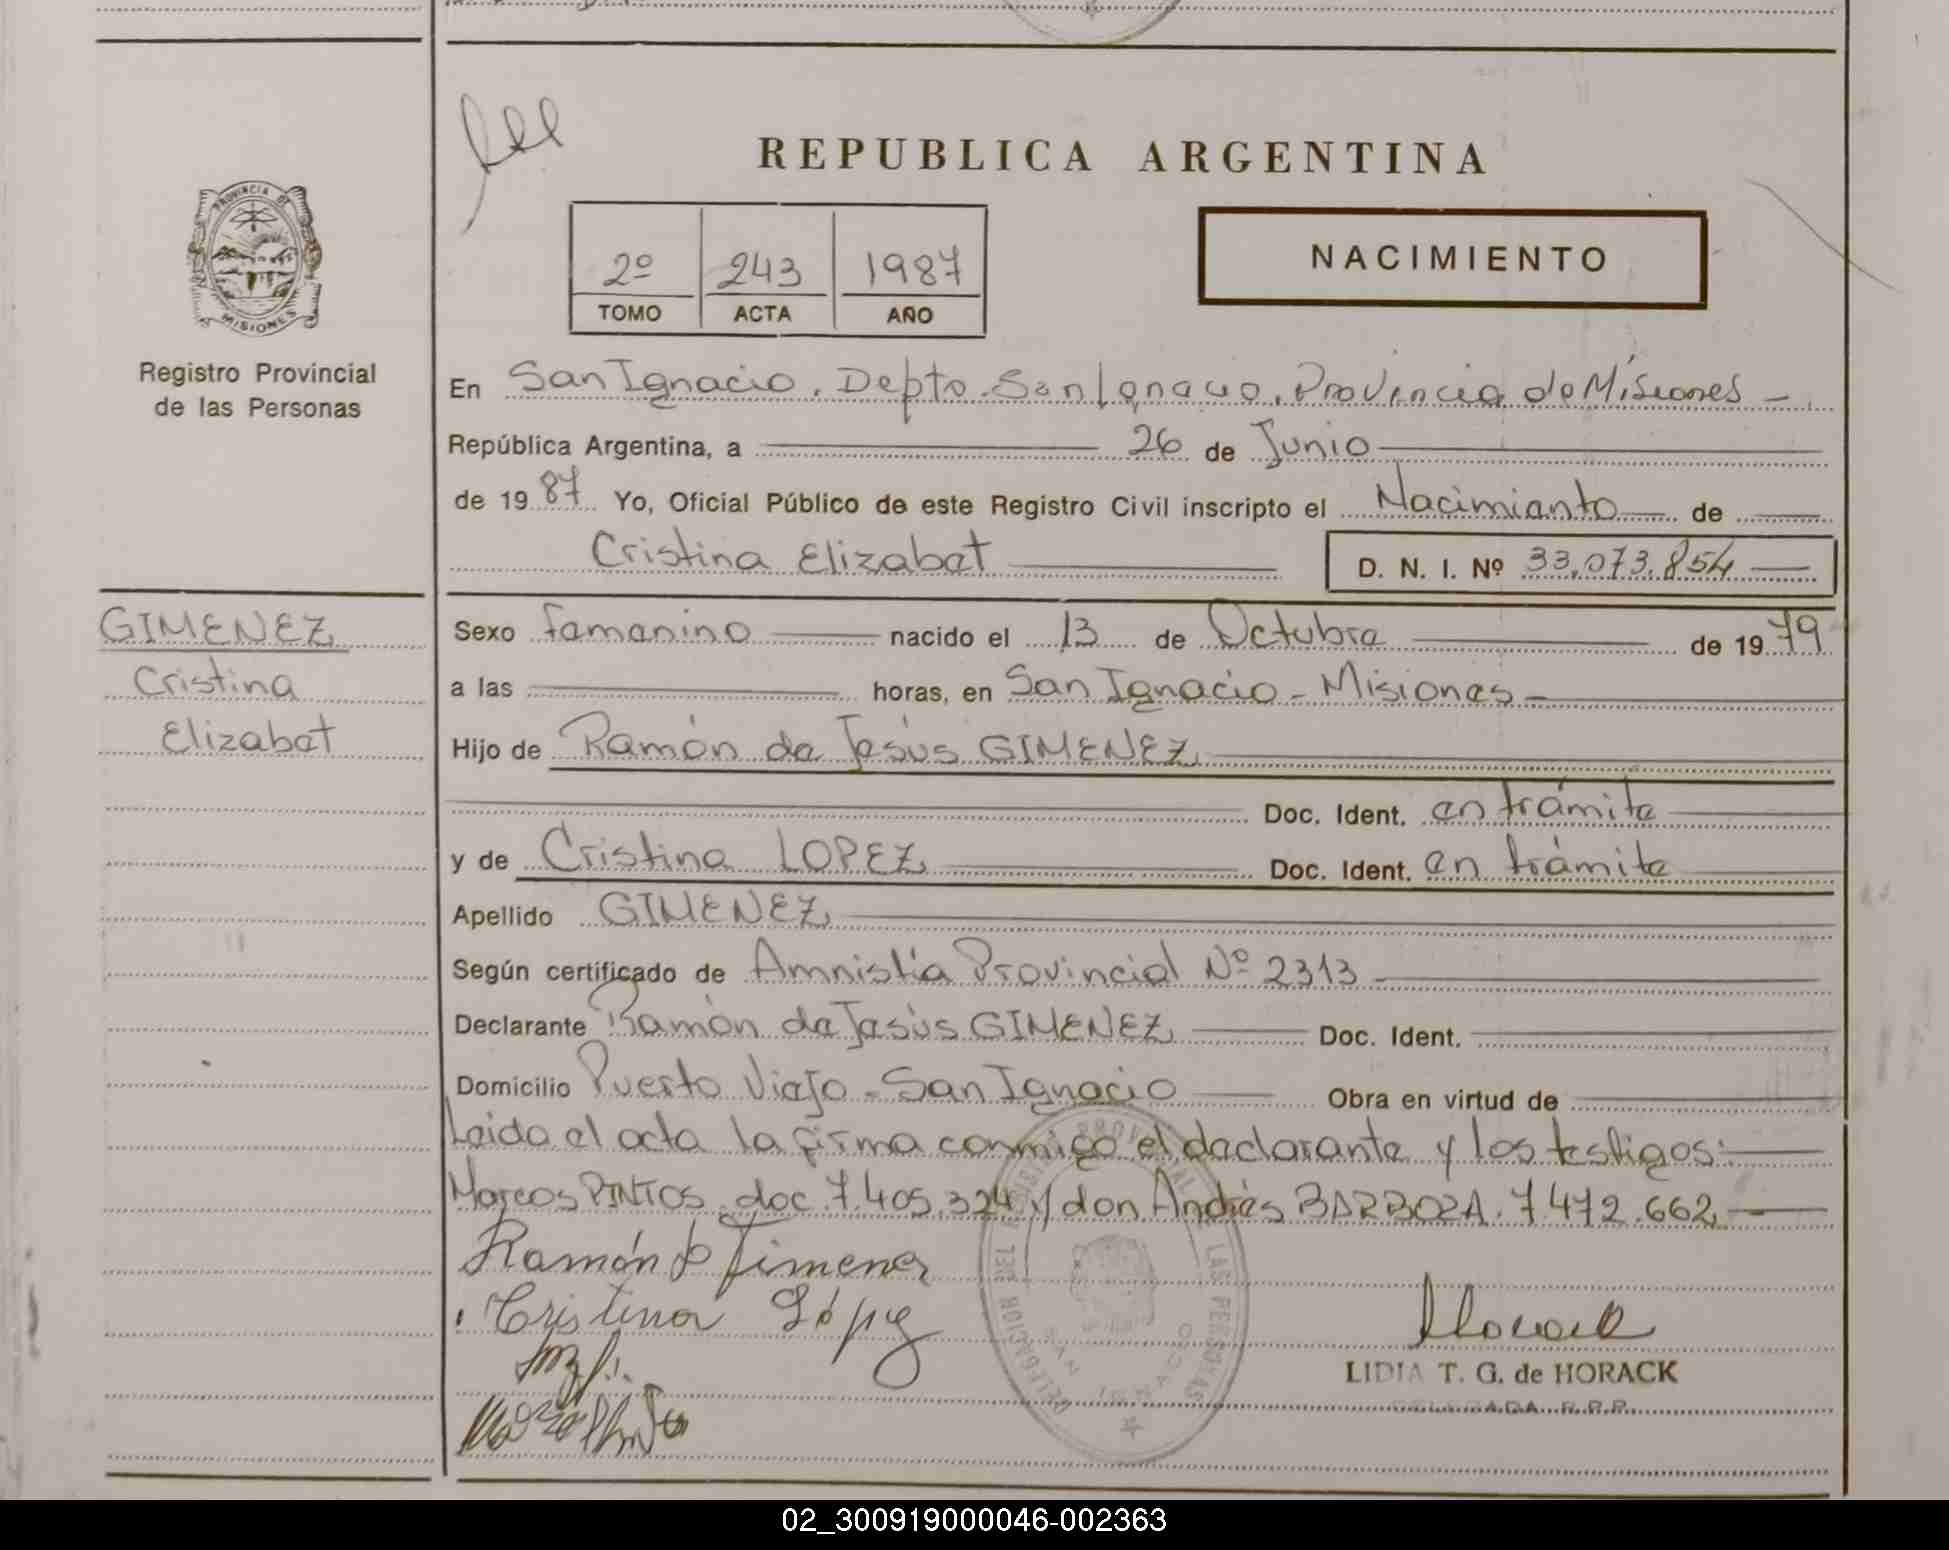 REPUBLICA ARGENTINA
PROVINCIA DE
MISIONES
Registro Provincial
de las Personas
2º 243 1987
TOMO ACTA AÑO
NACIMIENTO
En San Ignacio. Depto. San Ignacio. Provincia de Misiones -
República Argentina, a 26 de Junio
de 1987 Yo, Oficial Público de este Registro Civil inscripto el Nacimiento de
Cristina Elizabet D. N. I. Nº 33.073.854
GIMENEZ
Cristina
Elizabet
Sexo femenino nacido el 13 de Octubre de 1979
a las horas, en San Ignacio - Misiones -
Hijo de Ramón de Jesús GIMENEZ
Doc. Ident. en trámite
y de Cristina LOPEZ Doc. Ident. en trámite
Apellido GIMENEZ
Según certificado de Amnistía Provincial Nº 2313
Declarante Ramón de Jesús GIMENEZ Doc. Ident.
Domicilio Puerto Viejo - San Ignacio Obra en virtud de
Leida el acta la firma conmigo el declarante y los testigos:
Marcos PINTOS. doc. 7.405.324 y don Andrés BARBOZA. 7.472.662
Ramón Jimenez
Cristina López
DELEGACION DEL REGISTRO PROVINCIAL DE LAS PERSONAS
SAN IGNACIO
LIDIA T. G. de HORACK
DELEGADA R.P.P.
02_300919000046-002363